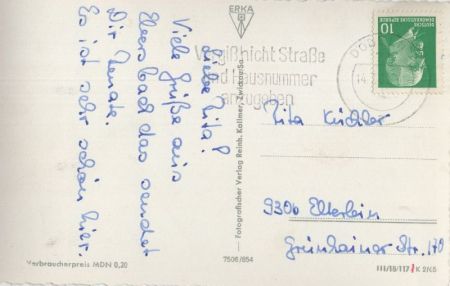 Liebe Rita!
Viele Grüße aus
Ebersbach das sendet
Dir Renate.
Es ist sehr schön hier.
Verbraucherpreis MDN 0,20
ERKA
Fotografischer Verlag Reinh. Kallmer, Zwickau/Sa.
7506/654
Vergiß nicht Straße
und Hausnummer
anzugeben
DEUTSCHE
DEMOKRATISCHE REPUBLIK
10
Rita Küchler
9306 Elterlein
Grünhainer Str. 170
III/18/117 K 2/65